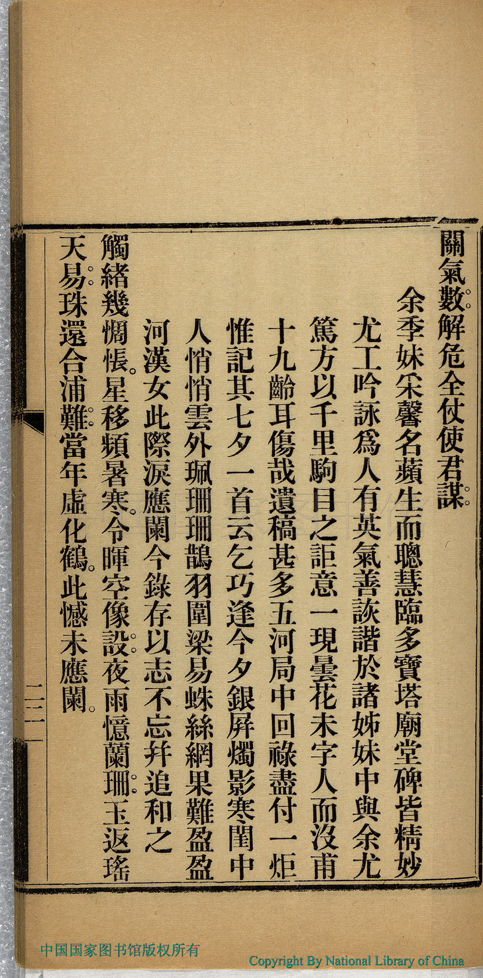 關氣數解危全仗使君謀
余季妹采馨名蘋生而聰慧臨多寶塔廟堂碑皆精妙
尤工吟詠爲人有英氣善詼諧於諸姊妹中與余尤
篤方以千里駒目之詎意一現曇花未字人而沒甫
十九齡耳傷哉遺稿甚多五河局中回祿盡付一炬
惟記其七夕一首云乞巧逢今夕銀屏燭影寒閨中
人悄悄雲外珮珊珊鵲羽圍梁易蛛絲網果難盈盈
河漢女此際淚應闌今錄存以志不忘幷追和之
觸緖幾惆悵星移頻暑寒令暉空像設夜雨憶蘭珊玉返瑤
天易珠還合浦難當年虛化鶴此憾未應闌
二二一
中国国家图书馆版权所有
Copyright By National Library of China